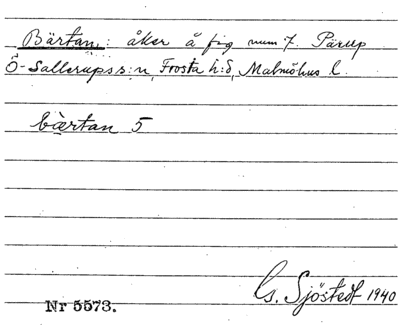 Bärtan: åker å fig num 7. Pärup
Ö-Sallerups s:n, Frosta h:d, Malmöhus l.
bàrtan 5
Gs. Sjöstedt 1940
Nr 5573.